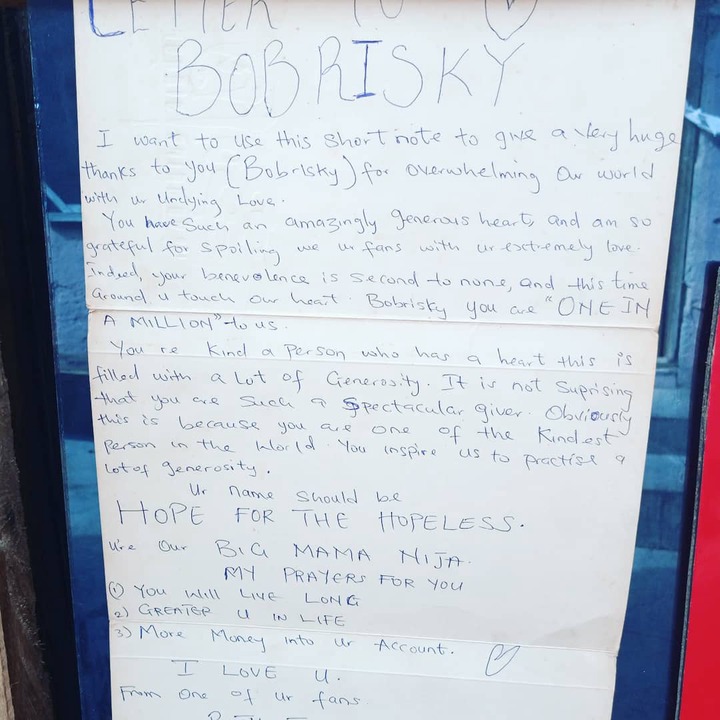 LETTER TO
BOBRISKY
I want to use this short note to give a very huge
thanks to you (Bobrisky) for overwhelming our world
with ur undying Love.
You have such an amazingly generous heart, and am so
grateful for spoiling we ur fans with ur extremely love.
Indeed, your benevolence is second to none, and this time
around u touch our heart. Bobrisky you are "ONE IN
A MILLION" to us.
You're Kind a person who has a heart this is
filled with a Lot of Generosity. It is not Suprising
that you are such a Spectacular giver. Obviously
this is because you are one of the kindest
person in the World. You inspire us to practise a
lot of generosity.
Ur name should be
HOPE FOR THE HOPELESS.
Ure Our BIG MAMA NIJA.
MY PRAYERS FOR YOU
(1) YOU WILL LIVE LONG
2) GREATER U IN LIFE
3) More Money into Ur Account.
I LOVE U.
From One of ur fans